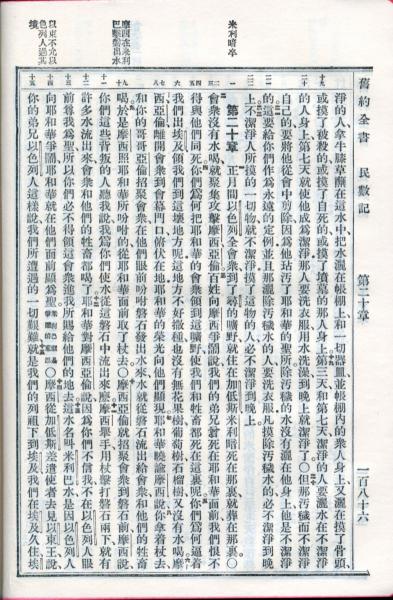 舊約全書 民數記 第二十章 一百八十六
淨的人拿牛膝草蘸在這水中把水灑在帳棚上和一切器皿並帳棚內的衆人身上又灑在摸了骨頭、
或摸了被殺的或摸了自死的或摸了墳墓的那人身上第三天和第七天潔淨的人要灑水在不潔淨
的人身上第七天就使他成爲潔淨那人要洗衣服用水洗澡到晚上就潔淨了○但那汚穢而不潔淨
自己的要將他從會中剪除因爲他玷汚了耶和華的聖所除汚穢的水沒有灑在他身上他是不潔淨
的要給你們作爲永遠的定例並且那灑除汚穢水的人要洗衣服凡摸除汚穢水的必不潔淨到晚
上不潔淨人所摸的一切物就不潔淨摸了這物的人必不潔淨到晚上
米利暗卒
第二十章 正月間以色列全會衆到了尋的曠野就住在加低斯米利暗死在那裏就葬在那裏○
會衆沒有水喝就聚集攻擊摩西亞倫百姓向摩西爭鬧說我們的弟兄曾死在耶和華面前我們恨不
得與他們同死你們爲何把耶和華的會衆領到這曠野使我們和牲畜都死在這裏呢你們爲何逼着
我們出埃及領我們到這壞地方呢這地方不好撒種也沒有無花果樹葡萄樹石榴樹又沒有水喝摩
西亞倫離開會衆到會幕門口俯伏在地耶和華的榮光向他們顯現耶和華曉諭摩西說你拿着杖去
和你的哥哥亞倫招聚會衆在他們眼前吩咐磐石發出水來水就從磐石流出給會衆和他們的牲畜
摩西在米利
巴擊磐出水
喝於是摩西照耶和華所吩咐的從耶和華面前取了杖去○摩西亞倫就招聚會衆到磐石前摩西說
你們這些背叛的人聽我說我爲你們使水從這磐石中流出來麽摩西舉手用杖擊打磐石兩下就有
許多水流出來會衆和他們的牲畜都喝了耶和華對摩西亞倫說因爲你們不信我不在以色列人眼
前尊我爲聖所以你們必不得領這會衆進我所賜給他們的地去這水名呌米利巴水是因以色列人
以東不允以
色列人過其
境
向耶和華爭鬧耶和華就在他們面前顯爲聖○摩西從加低斯差遣使者去見以東王說
你的弟兄以色列人這樣說我們所遭遇的一切艱難就是我們的列祖下到埃及我們在埃及久住埃